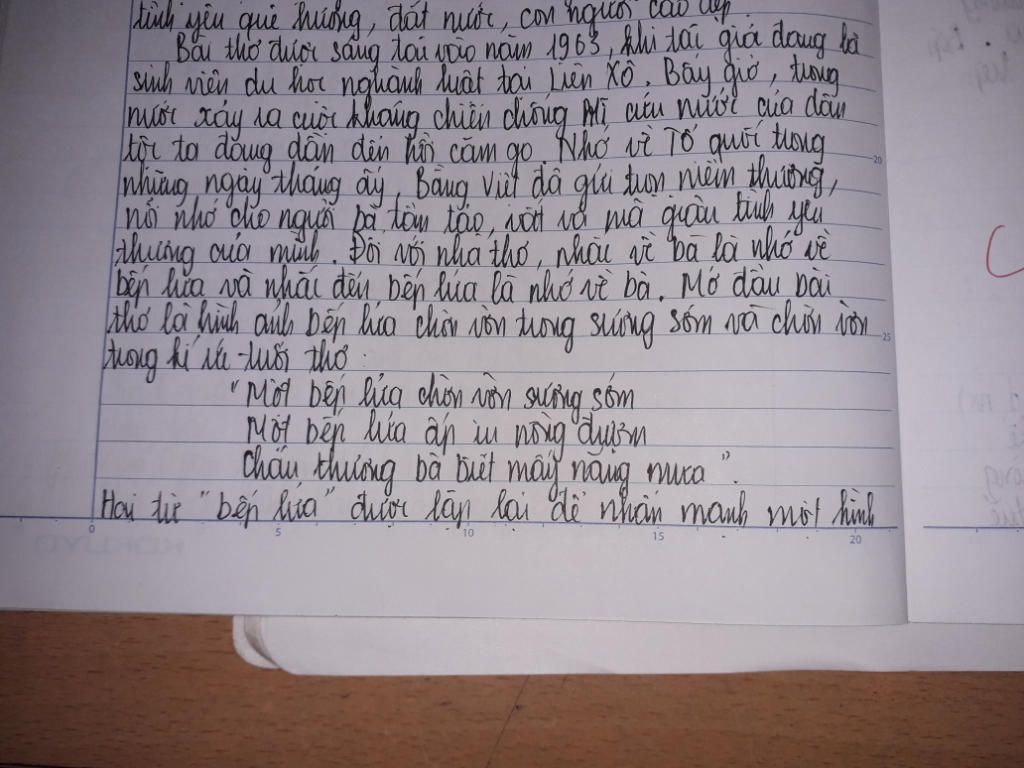 tình yêu quê hương, đất nước, con người cao đẹp
Bài thơ được sáng tác vào năm 1963, khi tác giả đang là
sinh viên du học nghành luật tại Liên Xô. Bấy giờ, trong
nước xảy ra cuộc kháng chiến chống Mĩ cứu nước của dân
tộc ta đang dần đến hồi căm go. Nhớ về Tổ quốc trong
những ngày tháng ấy, Bằng Việt đã gửi trọn niềm thương,
nỗi nhớ cho người bà tần tảo, vất vả mà giàu tình yêu
thương của mình. Đối với nhà thơ, nhắc về bà là nhớ về
bếp lửa và nhắc đến bếp lửa là nhớ về bà. Mở đầu bài
thơ là hình ảnh bếp lửa chờn vờn trong sương sớm và chờn vờn
trong kí ức tuổi thơ:
"Một bếp lửa chờn vờn sương sớm
Một bếp lửa ấp iu nồng đượm
Cháu thương bà biết mấy nắng mưa".
Hai từ "bếp lửa" được lặp lại để nhấn mạnh một hình
0 5 10 15 20
20
25